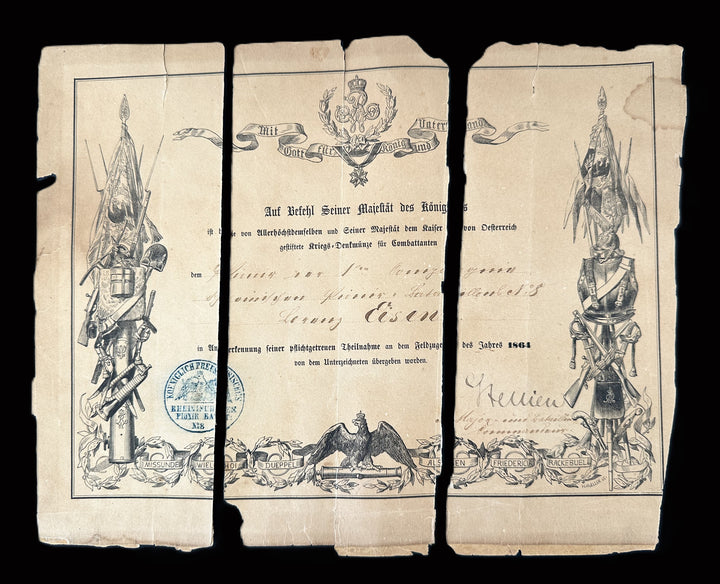 Mit Gott für König und Vaterland
Auf Befehl Seiner Majestät des Königs
ist die von Allerhöchstdemselben und Seiner Majestät dem Kaiser von Oesterreich
gestiftete Kriegs-Denkmünze für Combattanten
dem Pionier der 1ten Compagnie
Rheinischen Pionier-Bataillons No. 8
Lorenz Eisen
in Anerkennung seiner pflichtgetreuen Theilnahme an dem Feldzuge des Jahres 1864
von dem Unterzeichneten übergeben worden.
KOENIGLICH PREUSSISCHES
RHEINISCHES
PIONIR BAT
No 8
Major und
Commandeur
MISSUNDE DUEPPEL ALSEN FRIEDERICIA RACKEBUELL